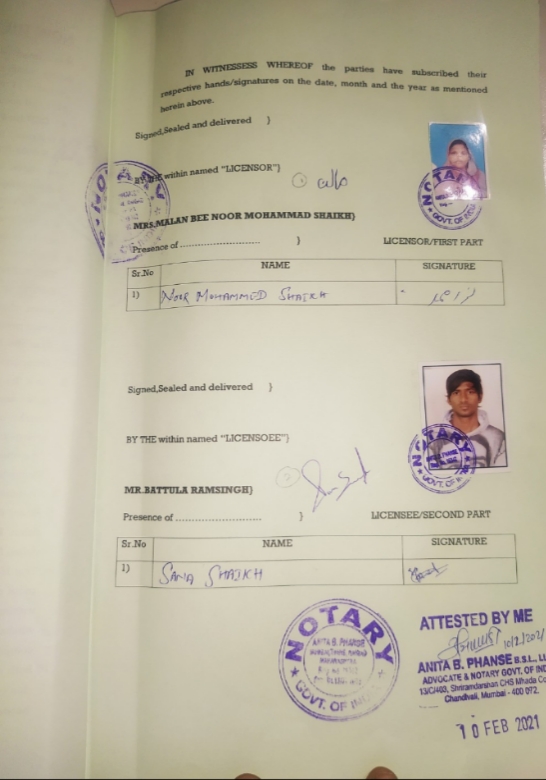 IN WITNESSESS WHEREOF the parties have subscribed their
respective hands/signatures on the date, month and the year as mentioned
herein above.
Signed,Sealed and delivered }
BY THE within named "LICENSOR"}
MRS.MALAN BEE NOOR MOHAMMAD SHAIKH}
Presence of ........................... } LICENSOR/FIRST PART
Sr.No NAME SIGNATURE
1) NOOR MOHAMMED SHAIKH
NOTARY
GOVT. OF INDIA
Signed,Sealed and delivered }
BY THE within named "LICENSOEE"}
NOTARY
GOVT. OF
MR.BATTULA RAMSINGH}
Presence of ........................... } LICENSEE/SECOND PART
Sr.No NAME SIGNATURE
1) SANA SHAIKH
NOTARY
ANITA B. PHANSE
GOVT. OF INDIA
ATTESTED BY ME
10/2/2021
ANITA B. PHANSE B.S.L., LL
ADVOCATE & NOTARY GOVT. OF IND
13/C/403, Shriramdarshan CHS Mhada Co
Chandivali, Mumbai - 400 072.
10 FEB 2021